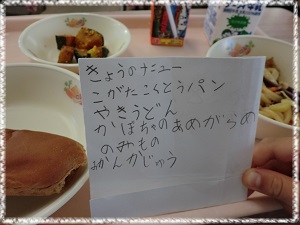 きょうのメニュー
こがたこくとうパン
やきうどん
かぼちゃのあめがらめ
のみもの
みかんかじゅう